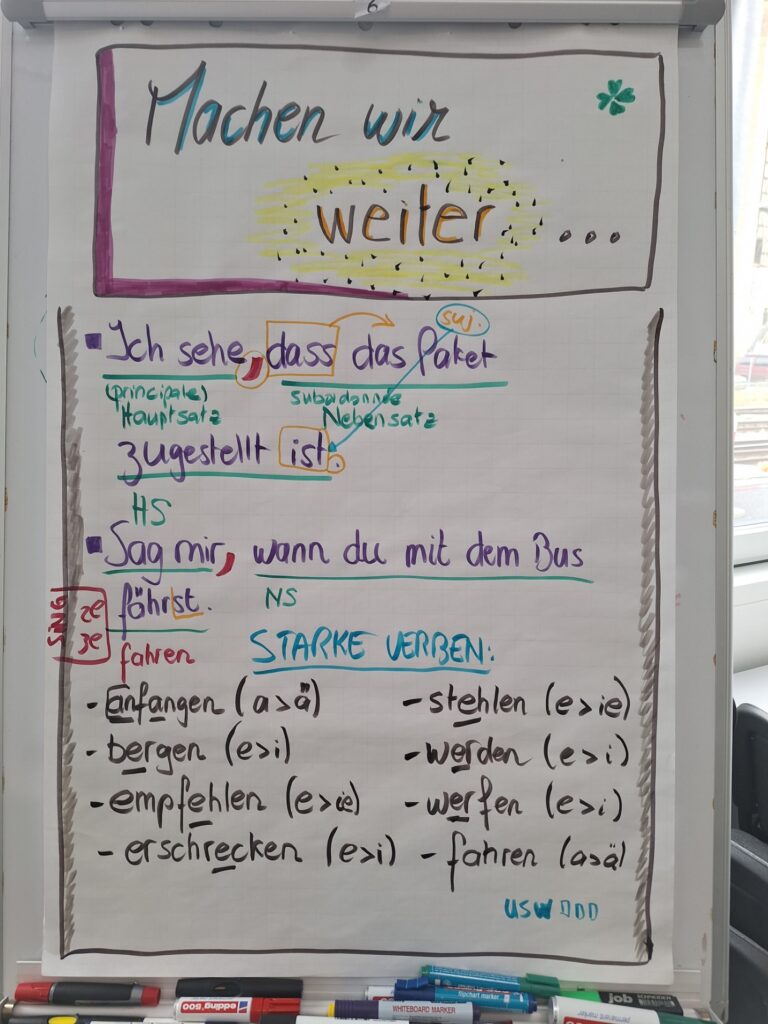 6
Machen wir
weiter ...
suj.
▪ Ich sehe, dass das Paket
(principale) subordonnée
Hauptsatz Nebensatz
zugestellt ist.
HS
▪ Sag mir, wann du mit dem Bus
fährst. NS
SING 2e
3e
fahren
STARKE VERBEN:
- anfangen (a>ä) - stehlen (e>ie)
- bergen (e>i) - werden (e>i)
- empfehlen (e>ie) - werfen (e>i)
- erschrecken (e>i) - fahren (a>ä)
usw...
edding 500
WHITEBOARD MARKER
flipchart marker
job
permanent marker